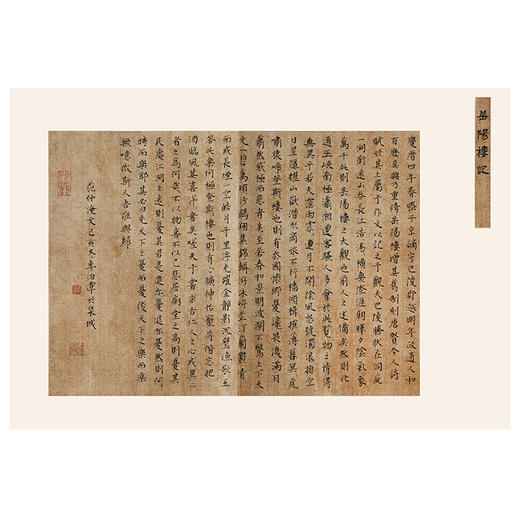 岳陽樓記
慶曆四年春滕子京謫守巴陵郡越明年政通人和
百廢具興乃重修岳陽樓增其舊制刻唐賢今人詩
賦於其上屬予作文以記之予觀夫巴陵勝狀在洞庭
一湖銜遠山吞長江浩浩湯湯橫無際涯朝暉夕陰氣象
萬千此則岳陽樓之大觀也前人之述備矣然則北
通巫峽南極瀟湘遷客騷人多會於此覽物之情得
無異乎若夫霪雨霏霏連月不開陰風怒號濁浪排空
日星隱耀山嶽潛形商旅不行檣傾楫摧薄暮冥冥虎
嘯猿啼登斯樓也則有去國懷鄉憂讒畏譏滿目
蕭然感極而悲者矣至若春和景明波瀾不驚上下天
光一碧萬頃沙鷗翔集錦鱗游泳岸芷汀蘭郁郁青青
而或長煙一空皓月千里浮光躍金靜影沉璧漁歌互
答此樂何極登斯樓也則有心曠神怡寵辱偕忘把
酒臨風其喜洋洋者矣嗟夫予嘗求古仁人之心或異二
者之為何哉不以物喜不以己悲居廟堂之高則憂其
民處江湖之遠則憂其君是進亦憂退亦憂然則何
時而樂耶其必曰先天下之憂而憂後天下之樂而樂
歟噫微斯人吾誰與歸
范仲淹文己亥冬李於泉城